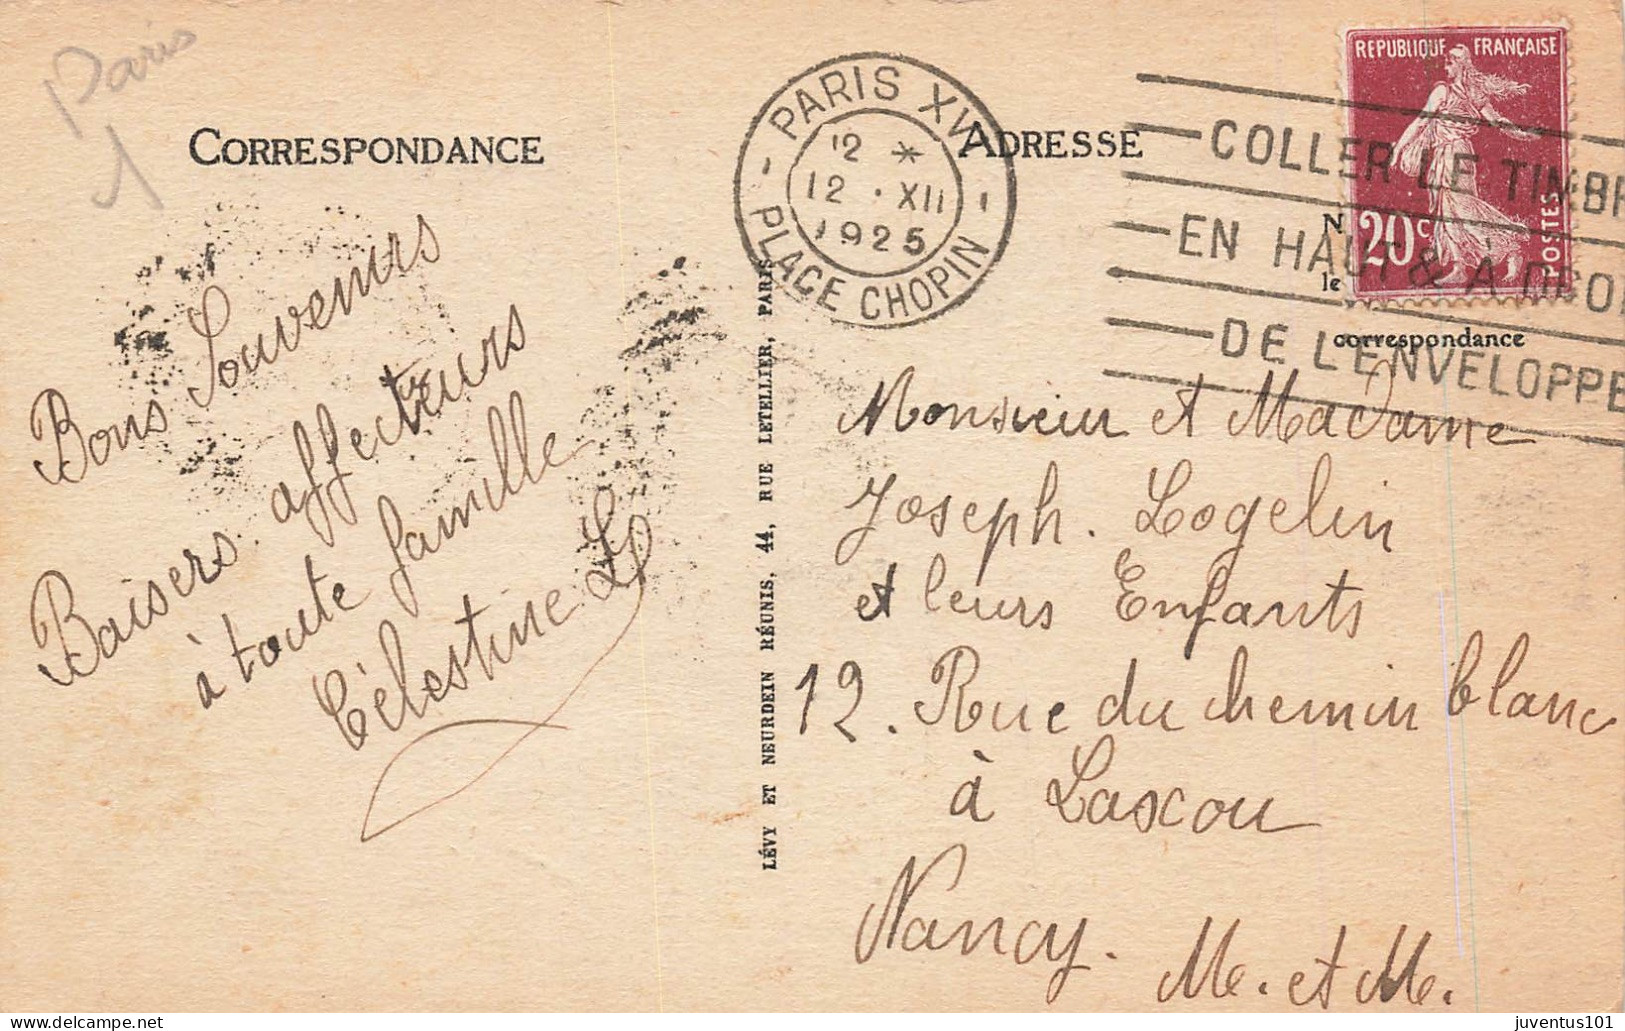 Paris
1
CORRESPONDANCE
Bons Souvenirs
Baisers affecteurs
à toute famille
Célestine L
LÉVY ET NEURDEIN RÉUNIS, 44, RUE LETELLIER, PARIS
PARIS XVI
12 *
12 • XII
1925
PLACE CHOPIN
ADRESSE
COLLER LE TIMBR
EN HAUT & À DROI
DE L'ENVELOPPE
REPUBLIQUE FRANÇAISE
20c
POSTES
N
le
correspondance
Monsieur et Madame
Joseph. Logelin
et leurs Enfants
12. Rue du chemin blanc
à Laxou
Nancy.
M. et M.
juventus101